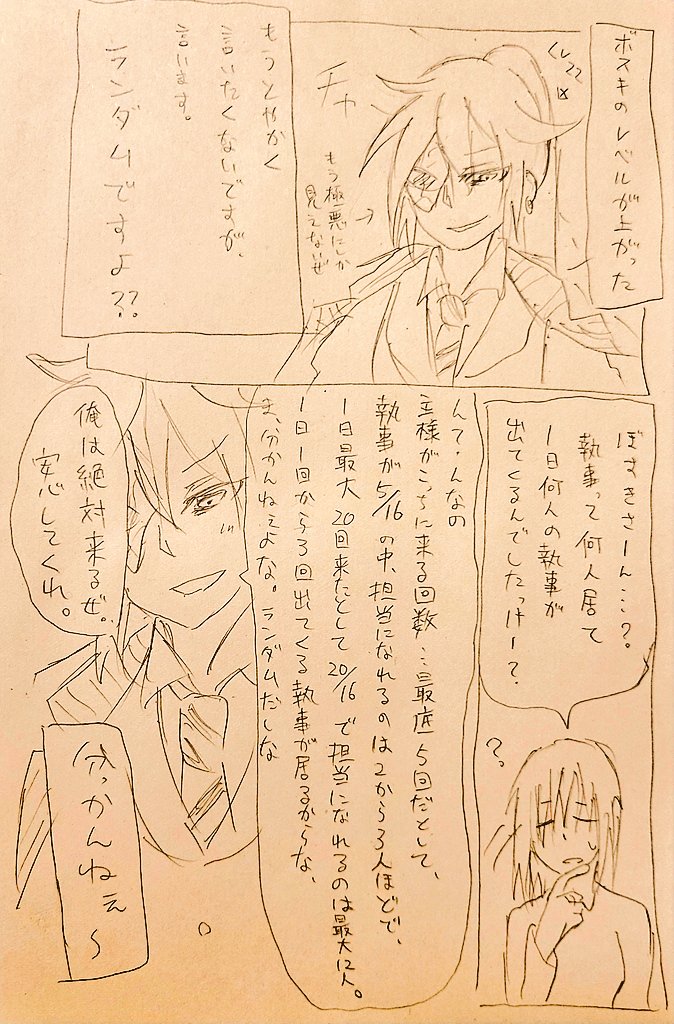 ボスキのレベルが上がった
レベル22
チャ
もう極悪にしか
見えないぜ
もうとやかく
言いたくないですが、
言います。
ランダムですよ??
ぼすきさーん…?。
執事って何人居て
1日何人の執事が
出てくるんでしたっけー?。
?。
んて、んなの
主様がこっちに来る回数…最底5回だとして、
執事が5/16の中、担当になれるのは2から3人ほどで、
1日最大20回来たとして20/16で担当になれるのは最大12人。
1日1回から3回出てくる執事が居るからな、
ま、分かんねぇよな。ランダムだしな
俺は絶対来るぜ。
安心してくれ。
分っかんねぇ〜